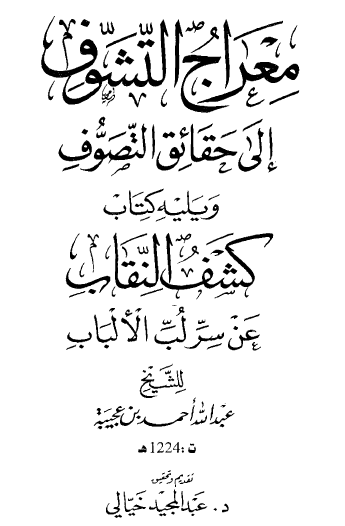 مِعْرَاجُ التَّشَوُّفِ
إِلَى حَقَائِقِ التَّصَوُّفِ
وَيَلِيهِ كِتَاب
كَشْفُ النِّقَابِ
عَنْ سِرِّ لُبِّ الْأَلْبَابِ
لِلشَّيْخِ
عبد الله أحمد بن عجيبة
ت : 1224 هـ
تقديم وتحقيق
د. عبد المجيد خيالي